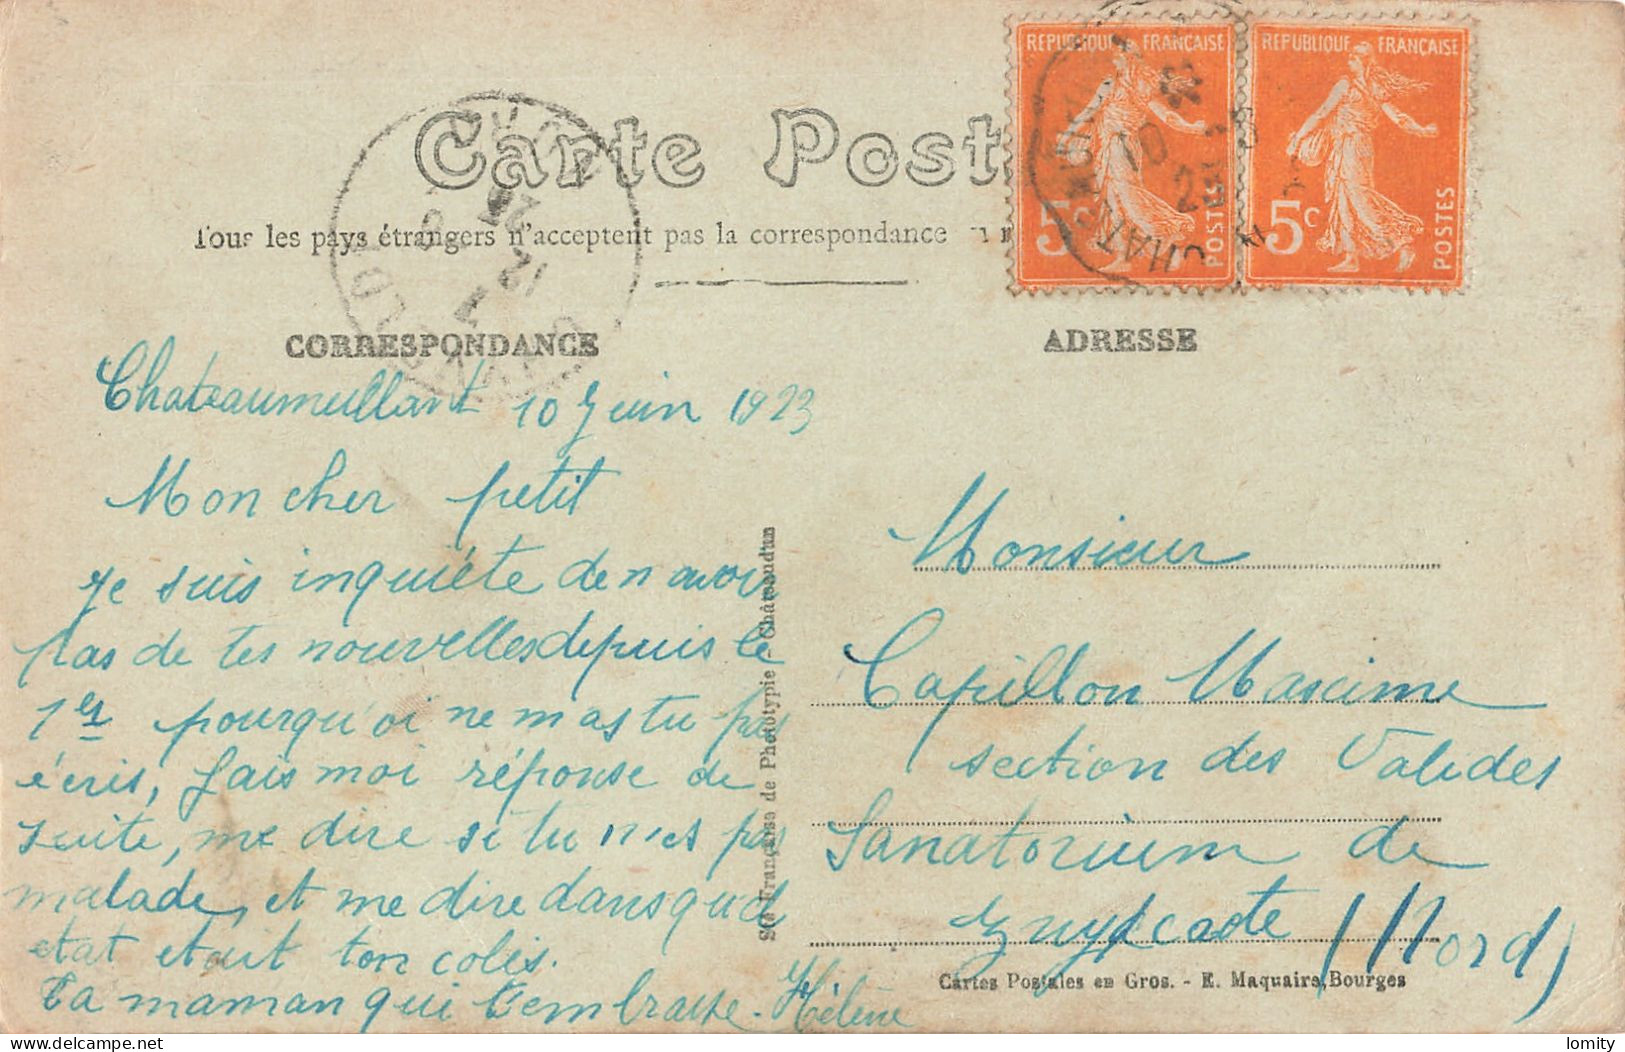 Carte Post
Tous les pays étrangers n'acceptent pas la correspondance
REPUBLIQUE FRANÇAISE
5c
POSTES
REPUBLIQUE FRANÇAISE
5c
POSTES
10
12
CORRESPONDANCE
Chateaumeillant 10 Juin 1923
Mon cher petit
Je suis inquiéte de n avoir
pas de tes nouvelles depuis le
1er pourquoi ne m as tu pas
écris, fais moi réponse de
suite, me dire si tu n'es pas
malade, et me dire dans quel
etat etait ton colis.
Ta maman qui t'embrasse. Hélène
Sté Française de Phototypie - Châteaudun
ADRESSE
Monsieur
Capillon Maxime
section des Valides
Sanatorium de
Zuydcoote (Nord)
Cartes Postales en Gros. - E. Maquaire, Bourges
delcampe.net
lomity